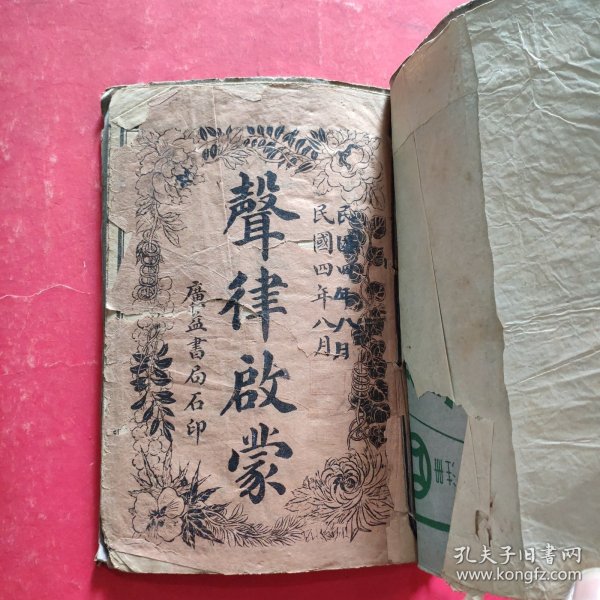 民國四年八月
民國四年八月
聲律啟蒙
廣益書局石印
注册
孔夫子旧书网
www.kongfz.com